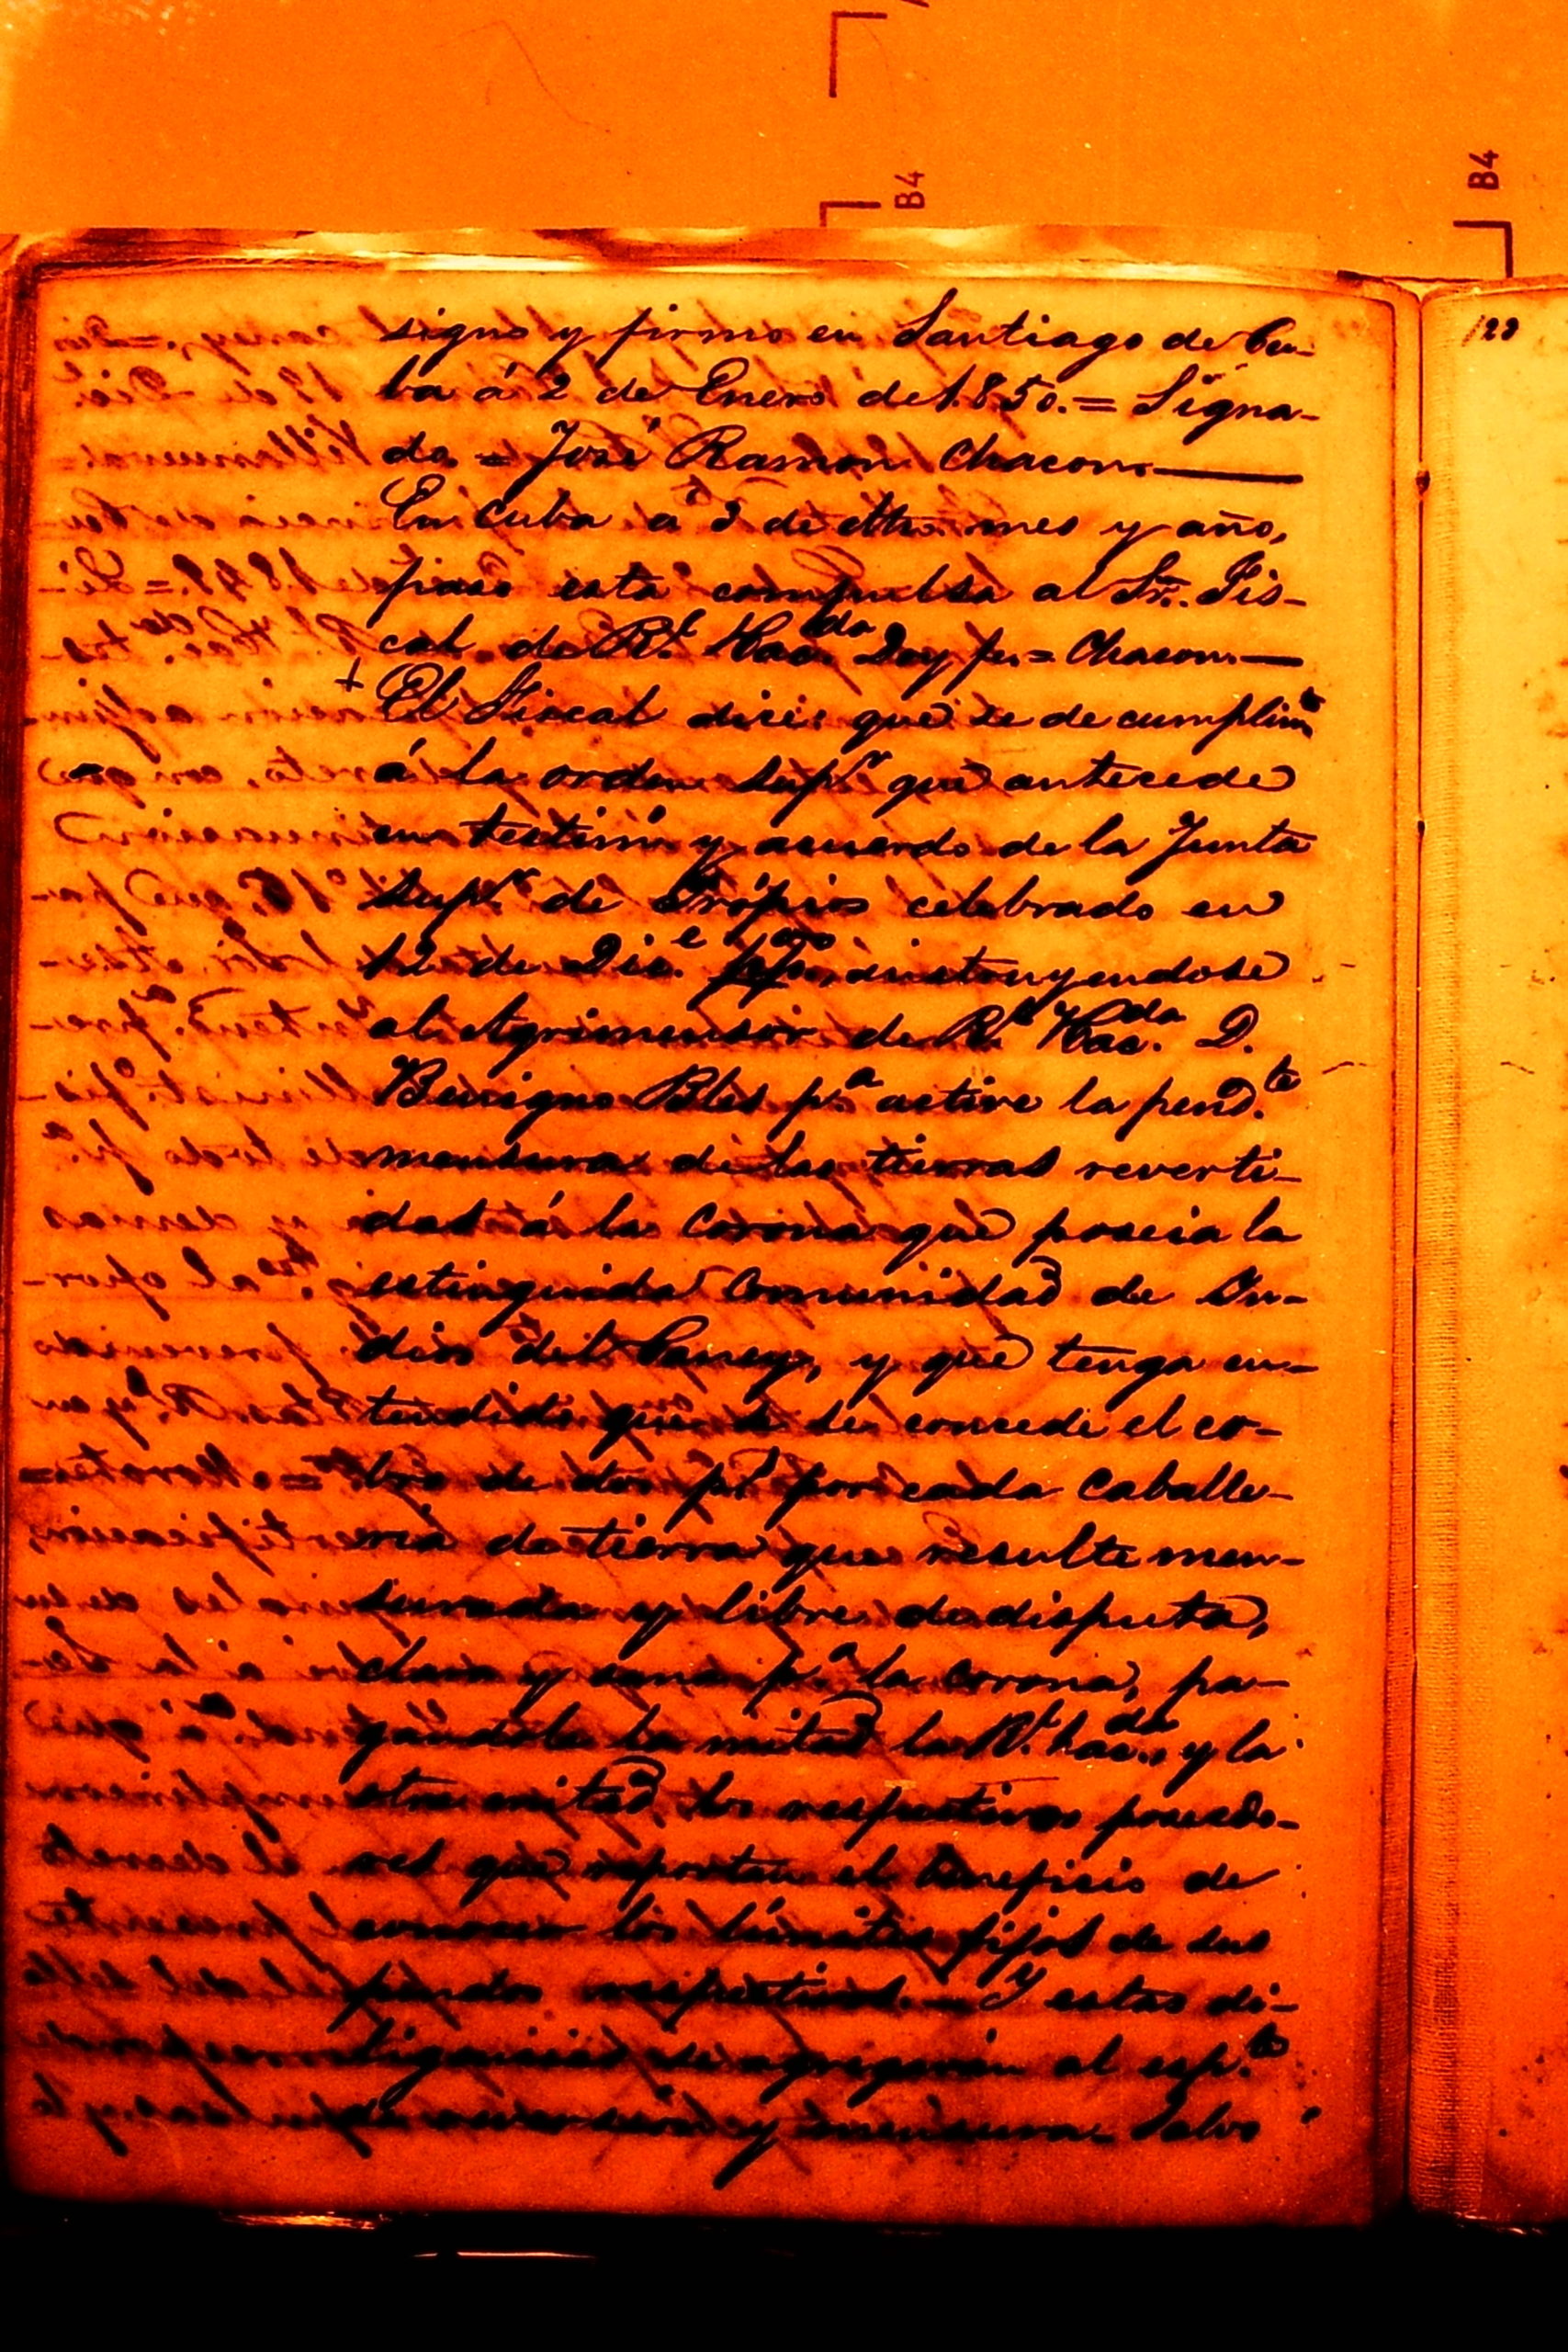 B4
B4
signo y firmo en Santiago de Cu-
ba á 2 de Enero de 1.850. = Signa-
do = José Ramon Chacon.
En Cuba a 2 de dho mes y año,
paso esta compulsa al Sr. Fis-
cal de Rl. Hacda. Doy fe. = Chacon.
+ El Fiscal dice: que se de cumplimto
á la orden supr. que antecede
en testim.o y acuerdo de la Junta
supr. de Própios celebrado en
12 de Dice. ppdo, instruyendose
al Agrimensor de Rl. Hacda. D.
Benigno Bles pa. active la pendte.
mensura de las tierras reverti-
das á la corona que poseia la
estinguida Comunidad de In-
dios del Caney, y que tenga en-
tendido que se le concede el co-
bro de dos ps. por cada caballe-
ria de tierra que resulte men-
surada y libre de disputa,
clara y sana pa. la corona, pa-
gándole la mitad la Rl. hacda., y la
otra mitad los respectivos poseedo-
res que reportan el beneficio de
conocer los límites fijos de sus
fundos respectivos. = Y estas di-
ligencias se agregarán al espte.
de reversión y mensura. Salvo
123